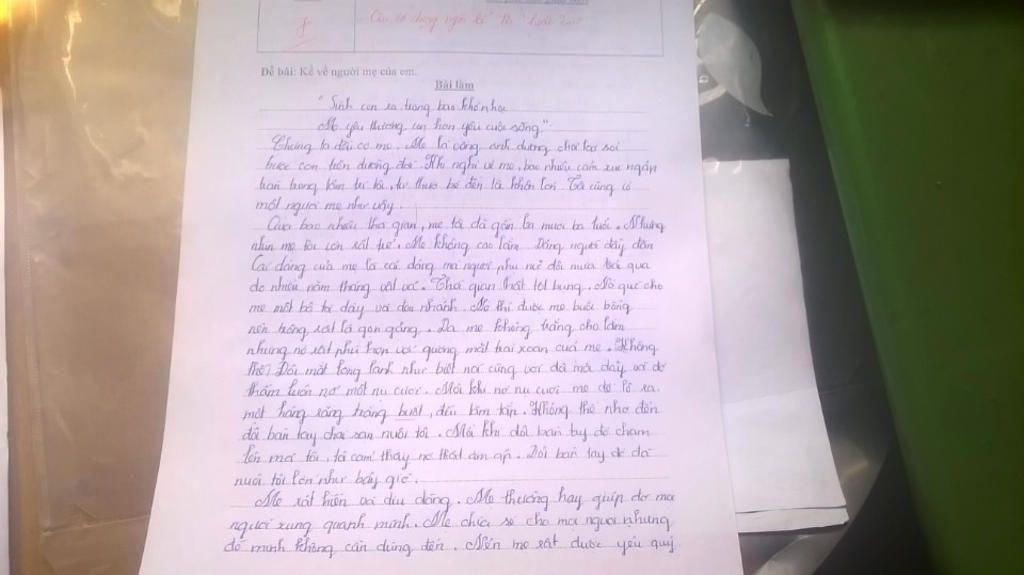 Đề bài: Kể về người mẹ của em.
Bài làm
"Sinh con ra trong bao khó nhọc
Mẹ yêu thương con hơn yêu cuộc sống".
Chúng ta đều có mẹ. Mẹ là vầng ánh dương chói lọi soi
bước con trên đường đời. Khi nghĩ về mẹ, bao nhiêu cảm xúc ngập
tràn trong tâm trí tôi, từ thuở bé đến lúc khôn lớn. Tôi cũng có
một người mẹ như vậy.
Qua bao nhiêu thời gian, mẹ tôi đã gần ba mươi ba tuổi. Nhưng
nhìn mẹ tôi còn rất trẻ. Mẹ không cao lắm. Dáng người đầy đặn
Cái dáng của mẹ là cái dáng mà người phụ nữ đã nửa trải qua
do nhiều năm tháng vất vả. Thời gian thật tốt bụng. Nó quý cho
mẹ một bộ tóc dày và đen nhánh. Nó thì được mẹ buộc bổng
nên trông rất là gọn gàng. Da mẹ không trắng cho lắm
nhưng nó rất phù hợp với gương mặt trái xoan của mẹ. Không
thế? Đôi mắt long lanh như biết nói cùng với đôi má đầy và đỏ
thắm luôn nở một nụ cười. Mỗi khi nở nụ cười mẹ để lộ ra
một hàng răng trắng buốt, đều tăm tắp. Không thể nhớ đến
đôi bàn tay chai sạn nuôi tôi. Mỗi khi đôi bàn tay đó chạm
lên má tôi, tôi cảm thấy nó thật ấm áp. Đôi bàn tay đó đã
nuôi tôi lớn như bây giờ.
Mẹ rất hiền và dịu dàng. Mẹ thường hay giúp đỡ mọi
người xung quanh mình. Mẹ chia sẻ cho mọi người những
đồ mình không cần dùng đến. Nên mẹ rất được yêu quý